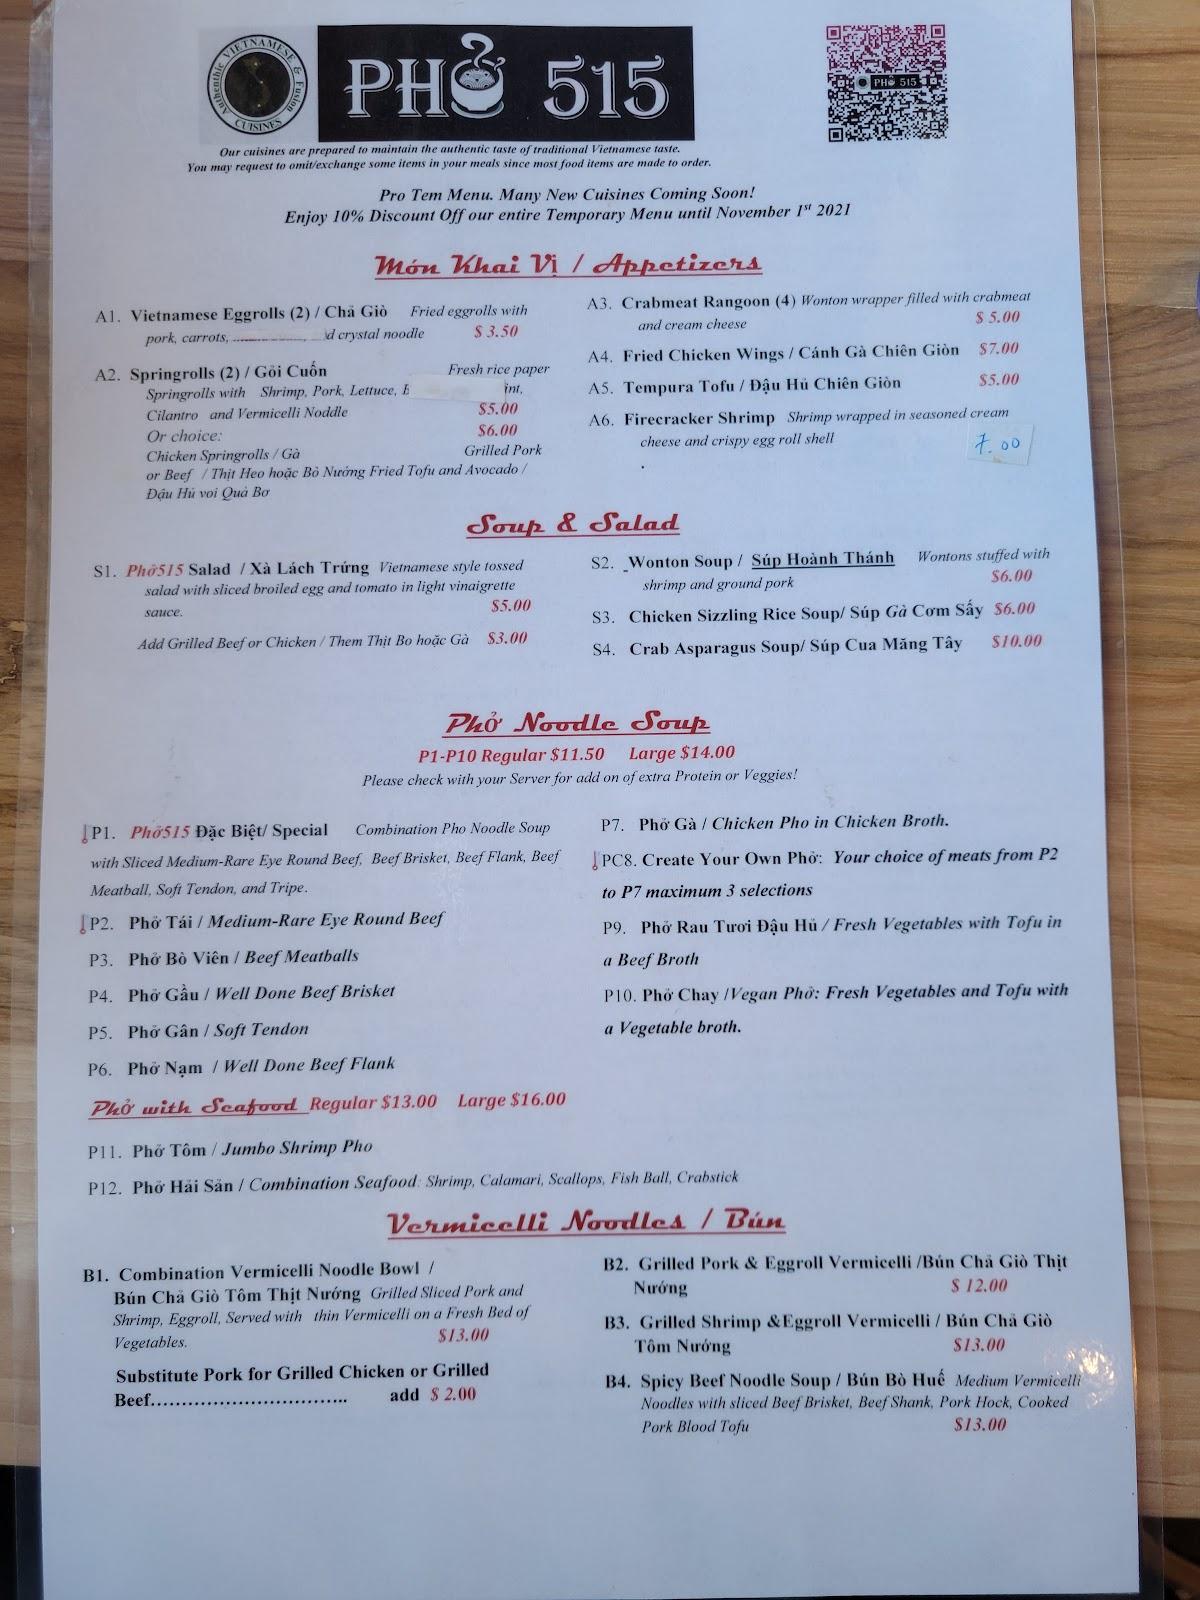 Authentic VIETNAMESE & Fusion CUISINES
PHỞ 515
PHỞ 515
Our cuisines are prepared to maintain the authentic taste of traditional Vietnamese taste.
You may request to omit/exchange some items in your meals since most food items are made to order.
Pro Tem Menu. Many New Cuisines Coming Soon!
Enjoy 10% Discount Off our entire Temporary Menu until November 1st 2021
Món Khai Vị / Appetizers
A1. Vietnamese Eggrolls (2) / Chả Giò Fried eggrolls with
pork, carrots, d crystal noodle $ 3.50
A2. Springrolls (2) / Gỏi Cuốn Fresh rice paper
Springrolls with Shrimp, Pork, Lettuce, int,
Cilantro and Vermicelli Noddle $5.00
Or choice: $6.00
Chicken Springrolls / Gà Grilled Pork
or Beef / Thịt Heo hoặc Bò Nướng Fried Tofu and Avocado /
Đậu Hủ voi Quả Bơ
A3. Crabmeat Rangoon (4) Wonton wrapper filled with crabmeat
and cream cheese $ 5.00
A4. Fried Chicken Wings / Cánh Gà Chiên Giòn $7.00
A5. Tempura Tofu / Đậu Hủ Chiên Giòn $5.00
A6. Firecracker Shrimp Shrimp wrapped in seasoned cream
cheese and crispy egg roll shell 7.00
Soup & Salad
S1. Phở515 Salad / Xà Lách Trứng Vietnamese style tossed
salad with sliced broiled egg and tomato in light vinaigrette
sauce. $5.00
Add Grilled Beef or Chicken / Them Thịt Bo hoặc Gà $3.00
S2. Wonton Soup / Súp Hoành Thánh Wontons stuffed with
shrimp and ground pork $6.00
S3. Chicken Sizzling Rice Soup/ Súp Gà Cơm Sấy $6.00
S4. Crab Asparagus Soup/ Súp Cua Măng Tây $10.00
Phở Noodle Soup
P1-P10 Regular $11.50 Large $14.00
Please check with your Server for add on of extra Protein or Veggies!
P1. Phở515 Đặc Biệt/ Special Combination Pho Noodle Soup
with Sliced Medium-Rare Eye Round Beef, Beef Brisket, Beef Flank, Beef
Meatball, Soft Tendon, and Tripe.
P2. Phở Tái / Medium-Rare Eye Round Beef
P3. Phở Bò Viên / Beef Meatballs
P4. Phở Gầu / Well Done Beef Brisket
P5. Phở Gân / Soft Tendon
P6. Phở Nạm / Well Done Beef Flank
P7. Phở Gà / Chicken Pho in Chicken Broth.
PC8. Create Your Own Phở: Your choice of meats from P2
to P7 maximum 3 selections
P9. Phở Rau Tươi Đậu Hủ / Fresh Vegetables with Tofu in
a Beef Broth
P10. Phở Chay /Vegan Phở: Fresh Vegetables and Tofu with
a Vegetable broth.
Phở with Seafood Regular $13.00 Large $16.00
P11. Phở Tôm / Jumbo Shrimp Pho
P12. Phở Hải Sản / Combination Seafood: Shrimp, Calamari, Scallops, Fish Ball, Crabstick
Vermicelli Noodles / Bún
B1. Combination Vermicelli Noodle Bowl /
Bún Chả Giò Tôm Thịt Nướng Grilled Sliced Pork and
Shrimp, Eggroll, Served with thin Vermicelli on a Fresh Bed of
Vegetables. $13.00
Substitute Pork for Grilled Chicken or Grilled
Beef………………………….. add $ 2.00
B2. Grilled Pork & Eggroll Vermicelli /Bún Chả Giò Thịt
Nướng $ 12.00
B3. Grilled Shrimp &Eggroll Vermicelli / Bún Chả Giò
Tôm Nướng $13.00
B4. Spicy Beef Noodle Soup / Bún Bò Huế Medium Vermicelli
Noodles with sliced Beef Brisket, Beef Shank, Pork Hock, Cooked
Pork Blood Tofu $13.00